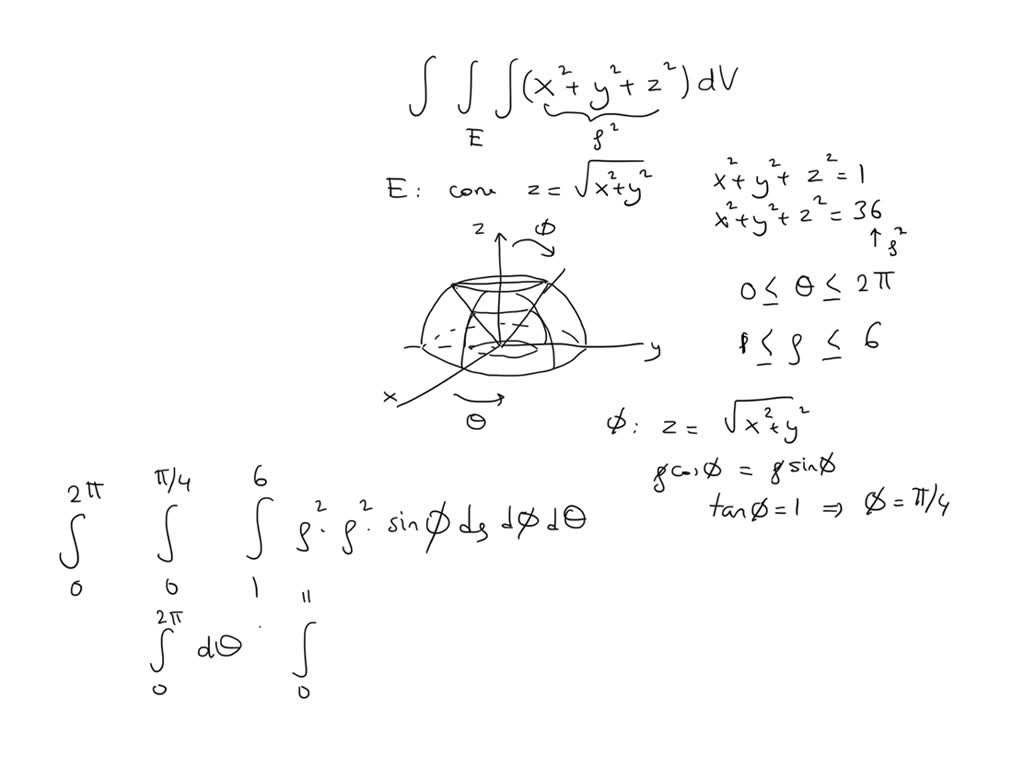 ∫ ∫ ∫ (x² + y² + z²) dV
E
ρ²
E: cone z = √(x² + y²)
x² + y² + z² = 1
x² + y² + z² = 36
↑ ρ²
z
ϕ
y
x
θ
0 ≤ θ ≤ 2π
1 ≤ ρ ≤ 6
ϕ: z = √(x² + y²)
ρcosϕ = ρsinϕ
tanϕ = 1 ⇒ ϕ = π/4
2π π/4 6
∫ ∫ ∫ ρ² · ρ² · sinϕ dρ dϕ dθ
0 0 1
=
2π
∫ dθ · ∫
0 0